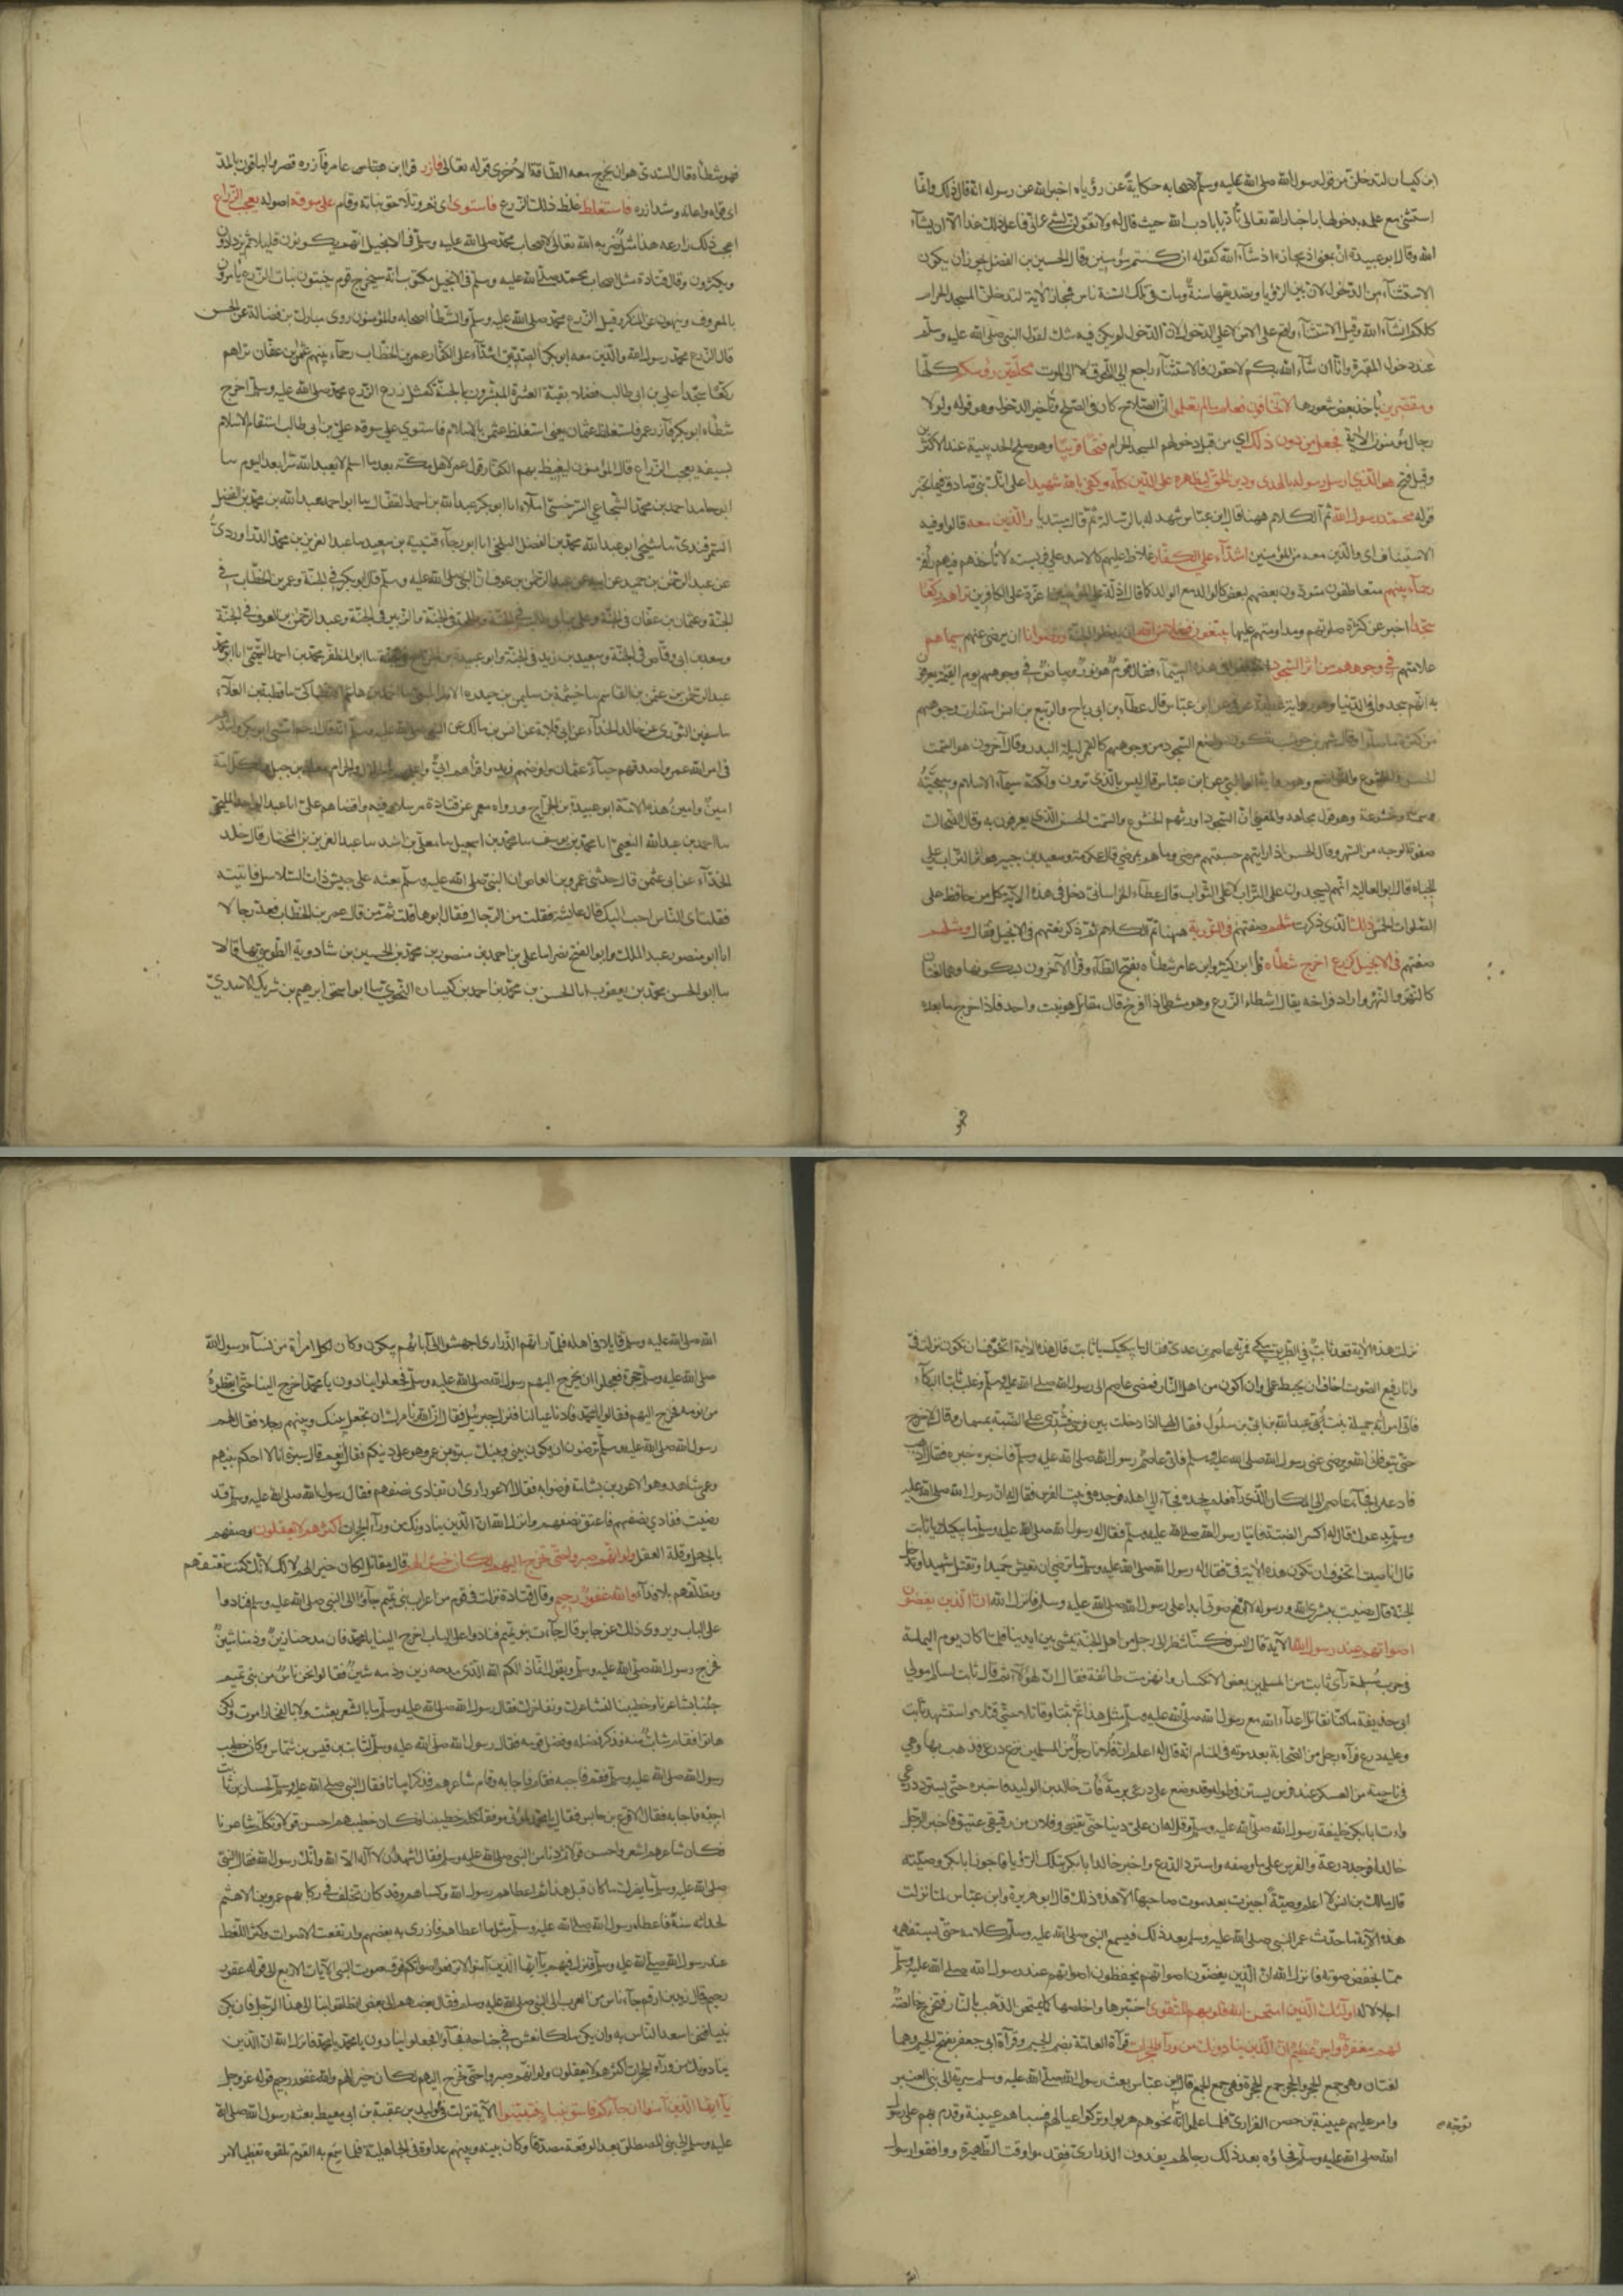 ابن كيسان لتدخلن من قول رسول الله صلى الله عليه وسلم لاصحابه حكاية عن رؤياه اخبر الله عن رسوله انه قال ذلك وانما
استثنى مع علمه بدخولها باخبار الله تعالى تأدبا باداب الله حيث قال له ولا تقولن لشيء اني فاعل ذلك غدا الا ان يشاء
الله وقال ابو عبيدة ان بمعنى اذ مجازه اذ شآء الله كقوله ان كنتم مؤمنين وقال الحسين بن الفضل يجوز ان يكون
الاستثنآء من الدخول لان بين الرؤيا وتصديقها سنة ومات في تلك السنة ناس فمجاز الآية لتدخلن المسجد الحرام
كلكم انشآء الله وقيل الاستثنآء واقع على الامن لا على الدخول لان الدخول لم يكن فيه شك لقول النبي صلى الله عليه وسلم
عند دخول المقبرة وانا ان شآء الله بكم لاحقون فالاستثنآء راجع الى اللحوق لا الى الموت محلقين رؤسكم كلها
ومقصرين باخذ بعض شعورها لا تخافون فعلم ما لم تعلموا ان الصلاح كان في الصلح وتأخير الدخول وهو قوله ولولا
رجال مؤمنون الآية فجعل من دون ذلك اي من قبل دخولهم المسجد الحرام فتحا قريبا وهو صلح الحديبية عند الاكثرين
وقيل فتح هو الذي ارسل رسوله بالهدى ودين الحق ليظهره على الدين كله وكفى بالله شهيدا على انك نبي صادق فيما تخبر
قوله محمد رسول الله تم الكلام ههنا قال ابن عباس شهد له بالرسالة ثم قال مبتديا والذين معه قالوا وفيه
الاستيناف اي والذين معه من المؤمنين اشدآء على الكفار غلاظ عليهم كالاسد على فريسته لا تأخذهم فيهم رأفة
رحمآء بينهم متعاطفون متوادون بعضهم لبعض كالوالد مع الولد كما قال اذلة على المؤمنين اعزة على الكافرين تراهم ركعا
سجدا اخبر عن كثرة صلوتهم ومداومتهم عليها يبتغون فضلا من الله ان يدخلهم الجنة ورضوانا ان يرضى عنهم سيماهم
علامتهم في وجوههم من اثر السجود اختلفوا في هذه السيمآء فقال قوم هو نور وبياض في وجوههم يوم القيمة يعرفون
به انهم سجدوا في الدنيا وهو رواية عطية عوفي عن ابن عباس قال عطآء بن ابي رباح والربيع بن انس استنارت وجوههم
من كثرة ما صلوا وقال شهر بن حوشب تكون مواضع السجود من وجوههم كالقمر ليلة البدر وقال آخرون هو السمت
الحسن والخشوع والتواضع وهو رواية الوالبي عن ابن عباس قال ليس بالذي ترون ولكنه سيمآء الاسلام وسجيته
وسمته وخشوعه وهو قول مجاهد والمعنى ان السجود اورثهم الخشوع والسمت الحسن الذي يعرفون به وقال الضحاك
صفرة الوجه من السهر وقال الحسن اذا رايتهم حسبتهم مرضى وما هم بمرضى قال عكرمة وسعيد بن جبير هو اثر التراب على
الجباه قال ابو العالية انهم يسجدون على التراب لا على الثواب قال عطآء الخراساني دخل في هذه الآية كل من حافظ على
الصلوات الخمس ذلك الذي ذكرت مثلهم صفتهم في التورية ههنا تم الكلام ثم ذكر نعتهم في الانجيل فقال ومثلهم
صفتهم في الانجيل كزرع اخرج شطأه قرأ ابن كثير وابن عامر شطأه بفتح الطآء وقرأ الآخرون بسكونها وهما لغتان
كالنهر والنهر واراد فراخه يقال اشطاء الزرع وهو مشطئ اذا افرخ قال مقاتل هو نبت واحد فاذا خرج ما بعده
فهو
فهو شطأه قال السدي هو ان يخرج معه الطاقة الاخرى قوله تعالى فازر قرا ابن عباس عامر فآزره قصر والباقون بالمد
اي قواه واعانه وشد ازره فاستغلظ غلظ ذلك الزرع فاستوى اي تم وتلاحق نباته وقام على سوقه اصوله يعجب الزراع
اعجب ذلك زارعه هذا مثل ضربه الله تعالى لاصحاب محمد صلى الله عليه وسلم في الانجيل انهم يكونون قليلا ثم يزدادون
ويكثرون وقال قتادة مثل اصحاب محمد صلى الله عليه وسلم في الانجيل مكتوب انه سيخرج قوم ينبتون نبات الزرع يأمرون
بالمعروف وينهون عن المنكر وقيل الزرع محمد صلى الله عليه وسلم والشطأ اصحابه والمؤمنون روى مبارك بن فضالة عن الحسن
قال الزرع محمد رسول الله والذين معه ابو بكر الصديق اشدآء على الكفار عمر بن الخطاب رحمآء بينهم عثمن بن عفان تراهم
ركعا سجدا علي بن ابي طالب فضلا بقية العشرة المبشرون بالجنة كمثل زرع الزرع محمد صلى الله عليه وسلم اخرج
شطأه ابو بكر فآزره عمر فاستغلظ عثمان يعني استغلظ عثمن بالاسلام فاستوى على سوقه علي بن ابي طالب استقام الاسلام
بسيفه يعجب الزراع قال المؤمنون ليغيظ بهم الكفار قول عمر لاهل مكة بعد ما اسلم لا نعبد الله سرا بعد اليوم نبا
ابو حامد احمد بن محمد الشجاعي السرخسي املآء انا ابو بكر عبد الله بن احمد القفال ثنا ابو احمد عبد الله بن محمد بن الفضل
السمرقندي ثنا شيخي ابو عبد الله محمد بن الفضل البلخي انا ابو رجآء قتيبة بن سعيد ثنا عبد العزيز بن محمد الدراوردي
عن عبد الرحمن بن حميد عن ابيه عن عبد الرحمن بن عوف ان النبي صلى الله عليه وسلم قال ابو بكر في الجنة وعمر بن الخطاب في
الجنة وعثمان بن عفان في الجنة وعلي بن ابي طالب في الجنة وطلحة في الجنة والزبير في الجنة وعبد الرحمن بن العوف في الجنة
وسعد بن ابي وقاص في الجنة وسعيد بن زيد في الجنة وابو عبيدة بن الجراح في الجنة ثنا ابو المظفر محمد بن احمد التيمي انا ابو محمد
عبد الرحمن بن عثمن بن القاسم ثنا خيثمة بن سليمن بن حيدرة ثنا قطبة بن العلآء
ثنا سفين الثوري عن خالد الحذآء عن ابي قلابة عن انس بن مالك عن النبي صلى الله عليه وسلم انه قال ارحم امتي ابو بكر واشدهم
في امر الله عمر واصدقهم حيآء عثمان وافرضهم زيد واقرأهم ابي واعلمهم بالحلال والحرام معاذ بن جبل ولكل امة
امين وامين هذه الامة ابو عبيدة بن الجراح ورواه معمر عن قتادة مرسلا وفيه واقضاهم علي انا عبد الواحد المليحي
ثنا احمد بن عبد الله النعيمي انا محمد بن يوسف ثنا محمد بن اسمعيل ثنا معلى بن اسد ثنا عبد العزيز بن المختار قال خالد
الحذآء عن ابي عثمن قال حدثني عمرو بن العاص ان النبي صلى الله عليه وسلم بعثه على جيش ذات السلاسل فاتيته
فقلت اي الناس احب اليك قال عايشة فقلت من الرجال فقال ابوها قلت ثم من قال عمر بن الخطاب فعد رجالا
انا ابو منصور عبد الملك وابو الفتح نصر انا علي بن احمد بن منصور بن محمد بن الحسين بن شادوية الطوسي بها قالا
ثنا ابو الحسن محمد بن يعقوب انا الحسن بن محمد بن احمد بن كيسان النحوي ثنا ابو اسحق ابرهيم بن شريك الاسدي
نزلت هذه الآية قعد ثابت في الطريق يبكي فمر به عاصم بن عدي فقال ما يبكيك يا ثابت قال هذه الآية اتخوف ان تكون نزلت في
وانا رفيع الصوت اخاف ان يحبط عملي وان اكون من اهل النار فمضى عاصم الى رسول الله صلى الله عليه وسلم وغلب ثابتا البكآء
فاتى امرأته جميلة بنت عبد الله بن ابي بن سلول فقال لها اذا دخلت بيت فرسي فشدي على الضبة بمسمار وقال لا اخرج
حتى يتوفاني الله او يرضى عني رسول الله صلى الله عليه وسلم فاتى عاصم رسول الله صلى الله عليه وسلم فاخبره خبره فقال اذهب
فادعه لي فجآء عاصم الى المكان الذي رآه فلم يجده فجآء الى اهله فوجده في بيت الفرس فقال له ان رسول الله صلى الله عليه
وسلم يدعوك فقال له اكسر الضبة فاتيا رسول الله صلى الله عليه وسلم فقال له رسول الله صلى الله عليه وسلم ما يبكيك يا ثابت
قال انا صيت اتخوف ان تكون هذه الآية في فقال له رسول الله صلى الله عليه وسلم اما ترضى ان تعيش حميدا وتقتل شهيدا وتدخل
الجنة قال رضيت ببشرى الله ورسوله لا ارفع صوتي ابدا على رسول الله صلى الله عليه وسلم فانزل الله ان الذين يغضون
اصواتهم عند رسول الله الآية قال انس فكنا ننظر الى رجل من اهل الجنة يمشي بين ايدينا فلما كان يوم اليمامة
في حرب مسيلمة رأى ثابت من المسلمين بعض الانكسار وانهزمت طائفة فقال اف لهؤلآء ثم قال ثابت لسالم مولى
ابي حذيفة ما كنا نقاتل اعدآء الله مع رسول الله صلى الله عليه وسلم مثل هذا ثم ثبتا وقاتلا حتى قتلا واستشهد ثابت
وعليه درع فرآه رجل من الصحابة بعد موته في المنام انه قال له اعلم ان فلانا رجل من المسلمين نزع درعي فذهب بها وهي
في ناحية من العسكر عند فرس يستن في طوله وقد وضع على درعي برمة فأت خالد بن الوليد فاخبره حتى يسترد درعي
وات ابا بكر خليفة رسول الله صلى الله عليه وسلم وقل له ان علي دينا حتى تقضي وفلان من رقيقي عتيق فاخبر الرجل
خالدا فوجد درعه والفرس على ما وصفه واسترد الدرع واخبر خالد ابا بكر بتلك الرؤيا فاجاز ابو بكر وصيته
قال مالك بن انس لا اعلم وصية اجيزت بعد موت صاحبها الا هذه ذلك قال ابو هريرة وابن عباس لما نزلت
هذه الآية ما حدث عمر النبي صلى الله عليه وسلم بعد ذلك فيسمع النبي صلى الله عليه وسلم كلامه حتى يستفهمه
مما يخفض صوته فانزل الله ان الذين يغضون اصواتهم يخفضون اصواتهم عند رسول الله صلى الله عليه وسلم
اجلالا له اولئك الذين امتحن الله قلوبهم للتقوى اختبرها واخلصها كما يمتحن الذهب بالنار فتخرج خالصة
لهم مغفرة واجر عظيم ان الذين ينادونك من ورآء الحجرات قرأه العامة بضم الجيم وقرأه ابي جعفر بفتح الجيم وهما
لغتان وهو جمع الحجر والحجر جمع الحجرة فهي جمع الجمع قال ابن عباس بعث رسول الله صلى الله عليه وسلم سرية الى بني العنبر
وامر عليهم عيينة بن حصن الفزاري فلما علموا انه نحوهم هربوا وتركوا عيالهم فسباهم عيينة وقدم بهم على رسول
توجه
الله صلى الله عليه وسلم فجاؤه بعد ذلك رجالهم يفدون الذراري فقدموا وقت الظهيرة ووافقوا رسول
الله صلى الله عليه وسلم قايلا في اهله فلما راتهم الذراري اجهشوا الى آبائهم يبكون وكان لكل امرأة من نسآء رسول الله
صلى الله عليه وسلم حجرة فعجلوا ان يخرج اليهم رسول الله صلى الله عليه وسلم فجعلوا ينادون يا محمد اخرج الينا حتى ايقظوه
من نومه فخرج اليهم فقالوا يا محمد فادنا عيالنا فنزل جبرئيل فقال ان الله يأمرك ان تجعل بينك وبينهم رجلا فقال لهم
رسول الله صلى الله عليه وسلم ترضون ان يكون بيني وبينكم سبرة بن عمرو وهو على دينكم فقالوا نعم فقال سبرة انا لا احكم بينهم
وعمي شاهد وهو الاعور بن بشامة فرضوا به فقال الاعور ارى ان تفادى نصفهم فقال رسول الله صلى الله عليه وسلم قد
رضيت ففادى نصفهم فاعتق نصفهم وانزل الله ان الذين ينادونك من ورآء الحجرات اكثرهم لا يعقلون وصفهم
بالجهل وقلة العقل ولو انهم صبروا حتى تخرج اليهم لكان خيرا لهم قال مقاتل لكان خيرا لهم لانك كنت تعتقهم
وتطلقهم بلا فدآء والله غفور رحيم وقال قتادة نزلت في قوم من اعراب بني تميم جآؤا الى النبي صلى الله عليه وسلم فنادوا
على الباب ويروى ذلك عن جابر قال جآءت بنو تميم فنادوا على الباب اخرج الينا يا محمد فان مدحنا زين وذمنا شين
فخرج رسول الله صلى الله عليه وسلم ويقول انما ذلكم الله الذي مدحه زين وذمه شين فقالوا نحن ناس من بني تميم
جئنا بشاعرنا وخطيبنا لنشاعرك ونفاخرك فقال رسول الله صلى الله عليه وسلم ما بالشعر بعثت ولا بالفخار امرت ولكن
هاتوا فقام شاب منهم فذكر فضله وفضل قومه فقال رسول الله صلى الله عليه وسلم لثابت بن قيس بن شماس وكان خطيب
رسول الله صلى الله عليه وسلم قم فاجبه فقام فاجابه وقام شاعرهم فذكر ابياتا فقال النبي صلى الله عليه وسلم لحسان بن ثابت
اجبه فاجابه فقام الاقرع بن حابس فقال ان محمدا لمؤتى تكلم خطيبنا فكان خطيبهم احسن قولا وتكلم شاعرنا
فكان شاعرهم اشعر واحسن قولا ثم دنا من النبي صلى الله عليه وسلم فقال اشهد ان لا اله الا الله وانك رسول الله فقال النبي
صلى الله عليه وسلم ما يضرك ما كان قبل هذا ثم اعطاهم رسول الله وكساهم وقد كان تخلف في ركابهم عمرو بن الاهتم
لحداثة سنه فاعطاه رسول الله صلى الله عليه وسلم مثل ما اعطاهم فازرى به بعضهم وارتفعت الاصوات وكثر اللغط
عند رسول الله صلى الله عليه وسلم فنزل فيهم يآ ايها الذين آمنوا لا ترفعوا اصواتكم فوق صوت النبي الآيات الاربع الى قوله غفور
رحيم قال زيد بن ارقم جآء ناس من العرب الى النبي صلى الله عليه وسلم فقال بعضهم لبعض انطلقوا بنا الى هذا الرجل فان يكن
نبيا فنحن اسعد الناس به وان يكن ملكا نعش في جناحه فجآؤا فجعلوا ينادون يا محمد يا محمد فانزل الله ان الذين
ينادونك من ورآء الحجرات اكثرهم لا يعقلون ولو انهم صبروا حتى تخرج اليهم لكان خيرا لهم والله غفور رحيم قوله عز وجل
يآ ايها الذين آمنوا ان جآءكم فاسق بنبأ فتبينوا الآية نزلت في الوليد بن عقبة بن ابي معيط بعثه رسول الله صلى الله
عليه وسلم الى بني المصطلق بعد الوقعة مصدقا وكان بينه وبينهم عداوة في الجاهلية فلما سمع به القوم تلقوه تعظيما لامر